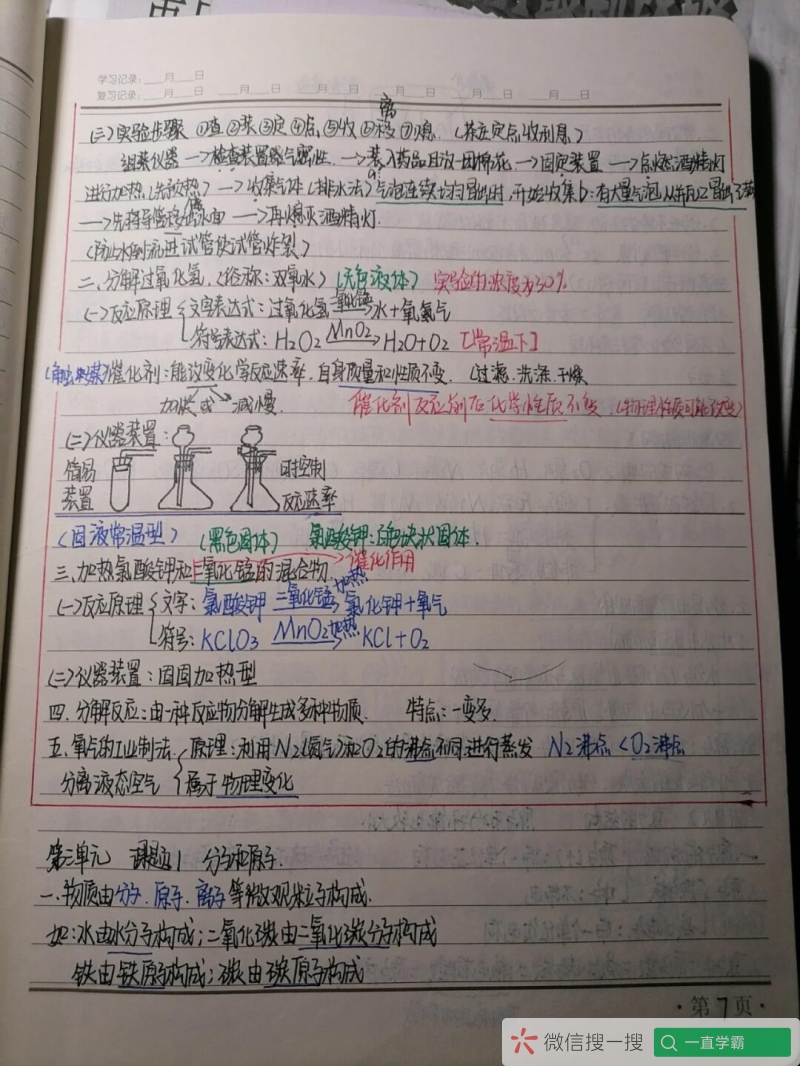 学习记录：___月___日
复习记录：___月___日 ___月___日 ___月___日 ___月___日 ___月___日 ___月___日
离
(三)实验步骤 ①查②装③定④点⑤收⑥移⑦熄 (茶庄定点收利息)
组装仪器→检查装置器气密性→装入药品且放一团棉花→固定装置→点燃酒精灯
进行加热(先预热)→收集气体(排水法)a:气泡连续均匀冒出时,开始收集b:有大量气泡从瓶口冒出
→先将导管移出水面→再熄灭酒精灯.
(防止水倒流进试管使试管炸裂)
二、分解过氧化氢,(俗称:双氧水) (无色液体) 实验的浓度为30%
(一)反应原理 文字表达式:过氧化氢 二氧化锰→ 水+氧氣气
符号表达式:H2O2 MnO2→ H2O+O2 【常温下】
催化剂:能改变化学反应速率.自身质量和性质不变. (过滤.洗涤.干燥
加快或减慢. 催化剂反应前后化学性质不变 (物理性质可能改变)
(二)仪器装置:
简易装置
控制反应速率
(固液常温型) (黑色固体) 氯酸钾:白色块状固体.
三、加热氯酸钾和二氧化锰的混合物 →催化作用
(一)反应原理 文字:氯酸钾 二氧化锰 加热→ 氯化钾+氧气
符号:KClO3 MnO2 加热→ KCl+O2
(二)仪器装置:固固加热型
四.分解反应:由一种反应物分解生成多种物质. 特点:一变多.
五.氧气的工业制法. 原理:利用N2(氮气)和O2的沸点不同进行蒸发 N2沸点<O2沸点
分离液态空气 属于物理变化
第三单元 课题1 分子和原子.
一.物质由分子.原子.离子等微观粒子构成.
如:水由水分子构成;二氧化碳由二氧化碳分子构成
铁由铁原子构成;碳由碳原子构成
·第7页·
微信搜一搜 一直学霸